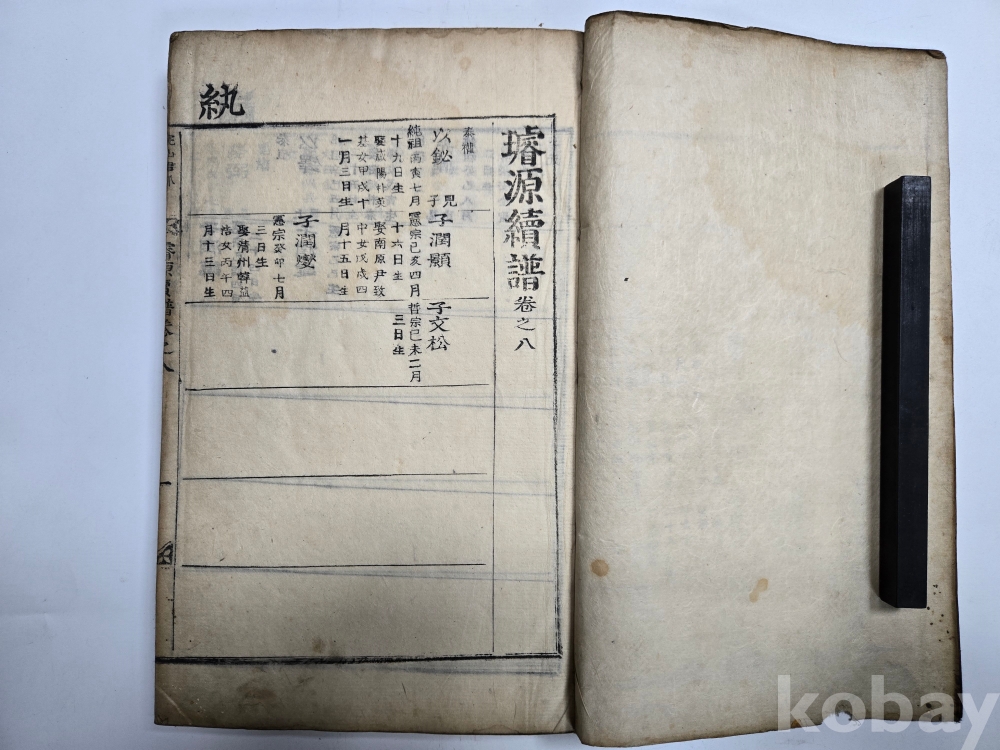 璿源續譜 卷之八
泰權
以鉍
見
子
純祖丙寅七月
十九日生
娶咸陽朴英
基女甲戌十
一月三日生
子潤顯
憲宗己亥四月
十六日生
娶南原尹致
中女戊戌四
月十五日生
子文松
哲宗己未二月
三日生
子潤燮
憲宗癸卯七月
三日生
娶淸州韓益
浩女丙午四
月十三日生
紈
kobay